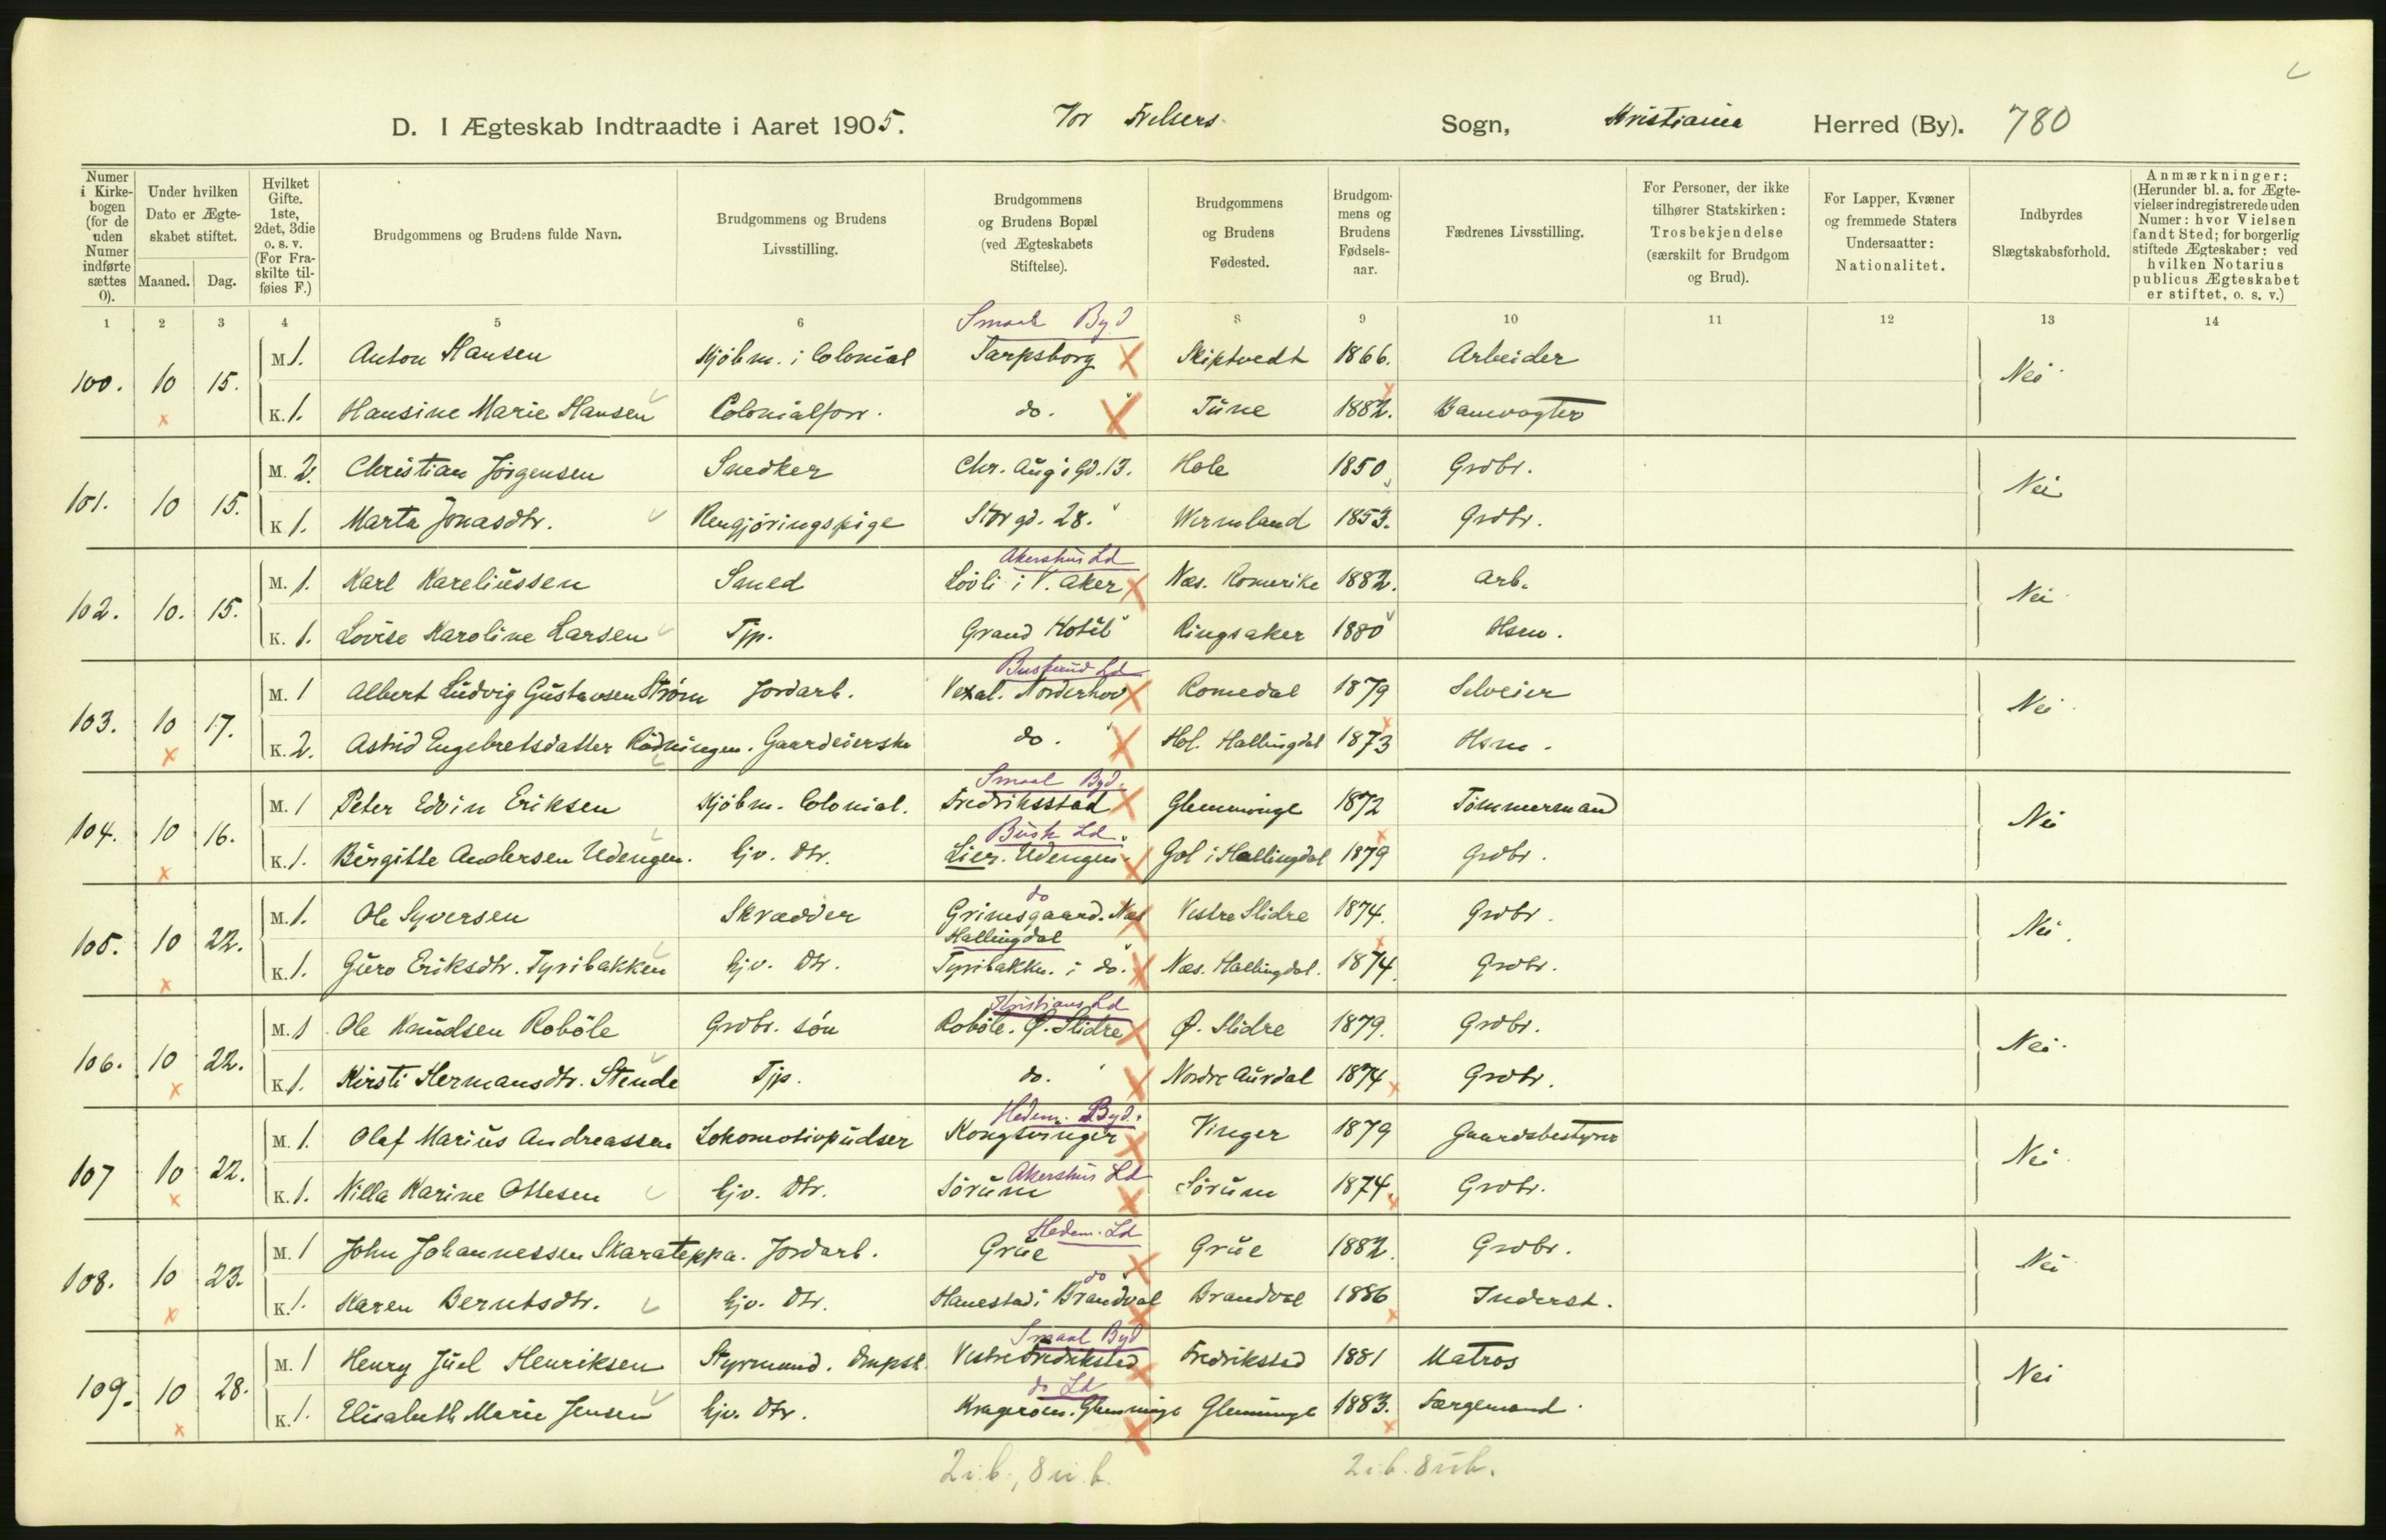 D. I Ægteskab Indtraadte i Aaret 1905. Vor Frelsers Sogn, Kristiania Herred (By). 780
Numer i Kirkebogen (for de uden Numer indførte sættes 0).
Under hvilken Dato er Ægteskabet stiftet.
Maaned. Dag.
Hvilket Gifte. 1ste, 2det, 3die o. s. v. (For Fraskilte tilføies F.)
Brudgommens og Brudens fulde Navn.
Brudgommens og Brudens Livsstilling.
Brudgommens og Brudens Bopæl (ved Ægteskabets Stiftelse).
Brudgommens og Brudens Fødested.
Brudgommens og Brudens Fødselsaar.
Fædrenes Livsstilling.
For Personer, der ikke tilhører Statskirken: Trosbekjendelse (særskilt for Brudgom og Brud).
For Lapper, Kvæner og fremmede Staters Undersaatter: Nationalitet.
Indbyrdes Slægtskabsforhold.
Anmærkninger: (Herunder bl. a. for Ægtevielser indregistrerede uden Numer: hvor Vielsen fandt Sted; for borgerlig stiftede Ægteskaber: ved hvilken Notarius publicus Ægteskabet er stiftet, o. s. v.)
1 2 3 4 5 6 8 9 10 11 12 13 14
Smaal Byd
M 1. Anton Hansen Kjöbm. i Colonial Sarpsborg Skiptvedt 1866. Arbeider
100. 10 15. Nei
K. 1. Hansine Marie Hansen Colonialforr. do. Tune 1882. Banevogter
M. 2. Christian Jörgensen Snedker Chr. Aug's Gd. 13. Hole 1850 Grdbr.
101. 10 15. Nei
K 1. Marta Jonasdtr. Rengjöringspige Storgd. 28. Wermland 1853. Grdbr.
Akershus Ld
M. 1. Karl Kareliussen Smed Lövli i V. Aker Næs. Romerike 1882. Arb.
102. 10. 15. Nei
K. 1. Lovise Karoline Larsen Tjp. Grand Hotel Ringsaker 1880 Hsm.
Buskerud Ld
M. 1 Albert Ludvig Gustavsen Ström Jordarb. Vexal. Norderhov Romedal 1879 Selveier
103. 10 17. Nei
K. 2. Astrid Engebretsdatter Rödningen. Gaardeierske do. Hol. Hallingdal 1873 Hsm.
Smaal Byd.
M. 1 Peter Edvin Eriksen Kjöbm. Colonial. Fredriksstad Glemminge 1872 Tömmermand
104. 10 16. Nei
Busk Ld.
K. 1. Birgitte Andersen Udengen. hjv. Dtr. Lier. Udengen. Gol i Hallingdal 1879 Grdbr.
do
M. 1. Ole Syversen Skrædder Grimsgaard. Næs Hallingdal Vestre Slidre 1874. Grdbr.
105. 10 22. Nei.
K. 1. Guro Eriksdtr. Tyribakken hjv. Dtr. Tyribakken. i do. Næs. Hallingdal. 1874. Grdbr.
Kristians Ld
M. 1 Ole Knudsen Roböle Grdbr. sön Roböle. Ø. Slidre Ø. Slidre 1879. Grdbr.
106. 10 22. Nei
K. 1. Kirsti Hermansdtr. Stende Tjp. do. Nordre Aurdal 1874 Grdbr.
Hedem. Byd.
M. 1. Olaf Marius Andreassen Lokomotivpudser Kongsvinger Vinger 1879 Gaardsbestyrer
107 10 22. Nei
Akershus Ld
K. 1. Nilla Karine Ottesen hjv. Dtr. Sörum Sörum 1874. Grdbr.
Hedem. Ld
M. 1 John Johannessen Skarateppa. Jordarb. Grue Grue 1882. Grdbr.
108. 10 23. Nei
do
K. 1. Karen Berntsdtr. hjv. Dtr. Hanestad i Brandval Brandval 1886 Inderst.
Smaal Byd
M. 1 Henry Juel Henriksen Styrmand. Dmpsk. Vestre Fredrikstad Fredrikstad 1881 Matros
109. 10 28. Nei
do Ld
K. 1. Elisabeth Marie Jensen hjv. Dtr. Kragerøen. Glemminge Glemminge 1883. Færgemand.
2 i. b., 8 u. b. 2 i. b. 8 u b.